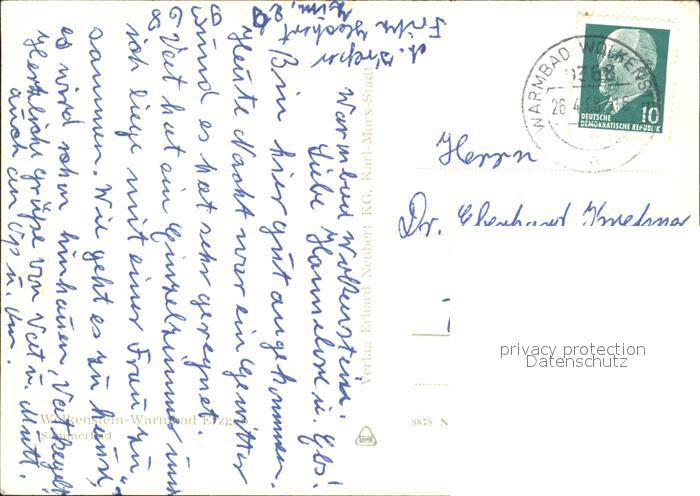 Warmbad Wolkenstein!
Liebe Hannelore u. Ebs!
Bin hier gut angekommen.
Heute Nacht war ein Gewitter
und es hat sehr geregnet.
Vat hat ein Einzelzimmer und
ich liege mit einer Frau zu
sammen. Wie geht es zu Hause,
es wird schon hinhauen, Vat
Herzliche Grüße von Vat u. Mutt.
auch an Op u. Om.
Fritz Heckert
Heim,
WARMBAD WOLKENST
9368
26.4.
DEUTSCHE
DEMOKRATISCHE REPUBLIK
10
a
Herrn
Dr. Eberhard
Verlag Erhard Neubert KG, Karl-Marx-Stadt
Wolkenstein-Warmbad Erzgeb.
8878 N
privacy protection
Datenschutz